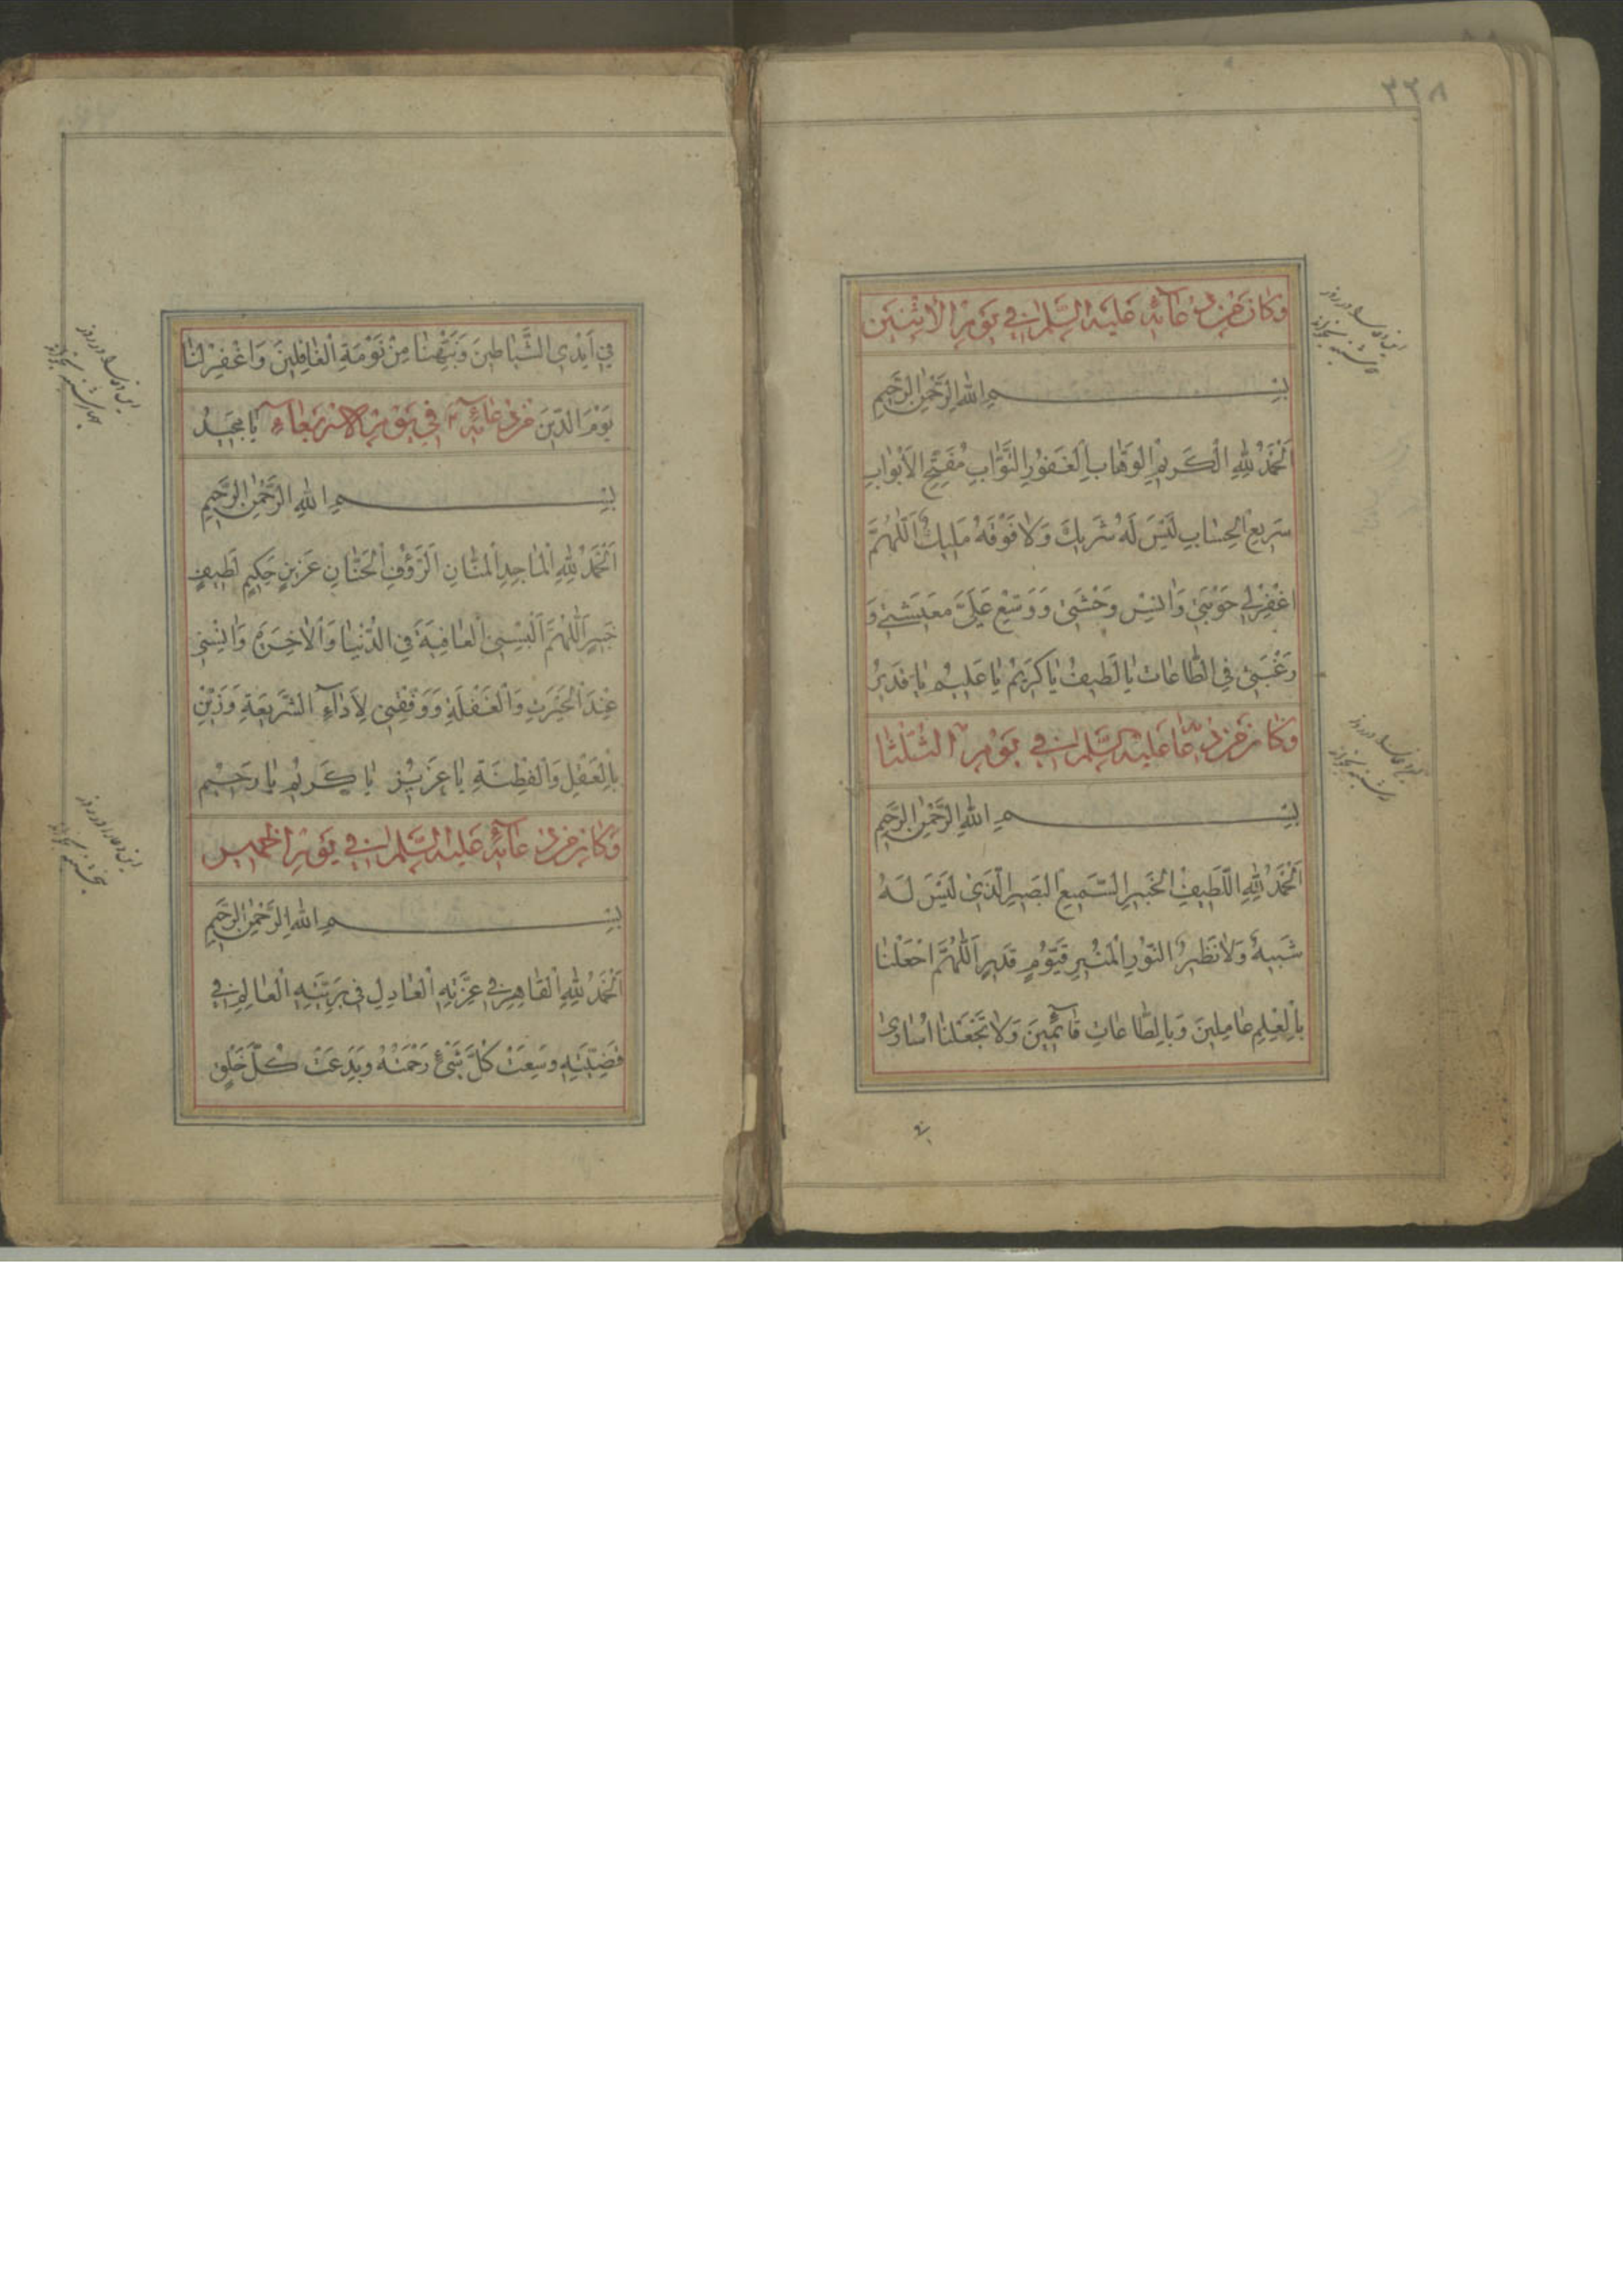 ٣٣٨
وَكَانَ مِنْ دُعَآئِهِ عَلَيْهِ السَّلٰم فِي يَوْمِ الْاثْنَيْنِ
بِسْمِ اللهِ الرَّحْمٰنِ الرَّحِيمِ
اَلْحَمْدُ لِلّٰهِ الْكَرِيْمِ الْوَهَّابِ الْغَفُورِ التَّوَّابِ مُفَتِّحِ الْاَبْوَابِ
سَرِيعِ الْحِسَابِ لَيْسَ لَهُ شَرِيكٌ وَلَا فَوْقَهُ مَلِيكٌ اَللّٰهُمَّ
اغْفِرْلِي حَوْبَتِي وَانِسْ وَحْشَتِي وَوَسِّعْ عَلَيَّ مَعِيشَتِي وَ
رَغِّبْنِي فِي الطَّاعَاتِ يَا لَطِيفُ يَا كَرِيْمُ يَا عَلِيمُ يَا قَدِيرُ
وَكَانَ مِنْ دُعَآ عَلَيْهِ السَّلٰم فِي يَوْمِ الثُّلَثَا
بِسْمِ اللهِ الرَّحْمٰنِ الرَّحِيمِ
اَلْحَمْدُ لِلّٰهِ اللَّطِيفِ الْخَبِيرِ السَّمِيعِ الْبَصِيرِ الَّذِي لَيْسَ لَهُ
شَبِيهٌ وَلَا نَظِيرٌ النُّورِ الْمُنِيرِ قَيُّومٍ قَدِيرٍ اَللّٰهُمَّ اجْعَلْنَا
بِالْعِلْمِ عَامِلِينَ وَبِالطَّاعَاتِ قَآئِمِينَ وَلَا تَجْعَلْنَا اُسَارٰى
فِي اَيْدِي الشَّيَاطِينِ وَنَبِّهْنَا مِنْ نَوْمَةِ الْغَافِلِينَ وَاغْفِرْلَنَا
يَوْمَ الدِّينِ مِنْ دُعَآئِهِ فِي يَوْمِ الْاَرْبَعَآءِ يَا مَجِيدُ
بِسْمِ اللهِ الرَّحْمٰنِ الرَّحِيمِ
اَلْحَمْدُ لِلّٰهِ الْمَاجِدِ الْمَنَّانِ الرَّؤُفِ الْحَنَّانِ عَزِيزٍ حَكِيمٍ لَطِيفٍ
خَبِيرٍ اَللّٰهُمَّ اَلْبِسْنِي الْعَافِيَةَ فِي الدُّنْيَا وَالْاٰخِرَةِ وَانِسْنِي
عِنْدَ الْحَيْرَتِ وَالْغَفْلَةِ وَوَفِّقْنِي لِاَدَآءِ الشَّرِيعَةِ وَزَيِّنِّي
بِالْعَقْلِ وَالْفِطْنَةِ يَا عَزِيزُ يَا كَرِيْمُ يَا رَحِيْمُ
وَكَانَ مِنْ دُعَآئِهِ عَلَيْهِ السَّلٰم فِي يَوْمِ الْخَمِيسِ
بِسْمِ اللهِ الرَّحْمٰنِ الرَّحِيمِ
اَلْحَمْدُ لِلّٰهِ الْقَاهِرِ فِي عِزَّتِهِ الْعَادِلِ فِي بَرِيَّتِهِ الْعَالِمِ فِي
قَضِيَّتِهِ وَسِعَتْ كُلَّ شَيْءٍ رَحْمَتُهُ وَبَدِعَتْ كُلَّ خَلْقٍ